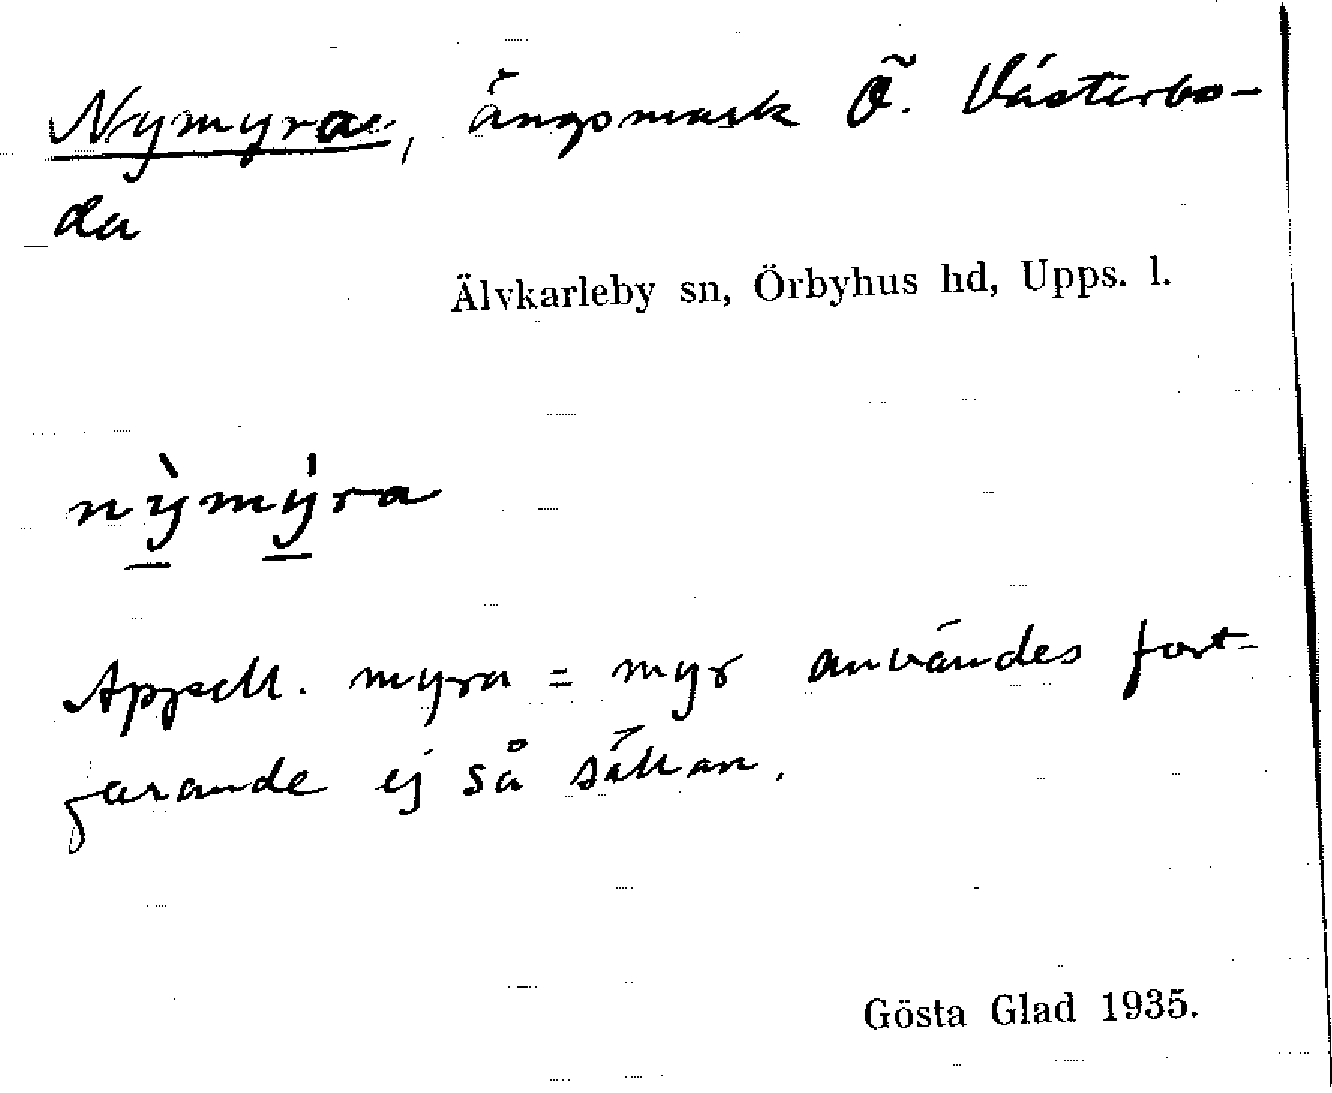 Nymyra, ängsmark Ö. Västerbo-
da
Älvkarleby sn, Örbyhus hd, Upps. l.
nỳmýra
Appell. myra = myr användes fort-
farande ej så sällan.
Gösta Glad 1935.